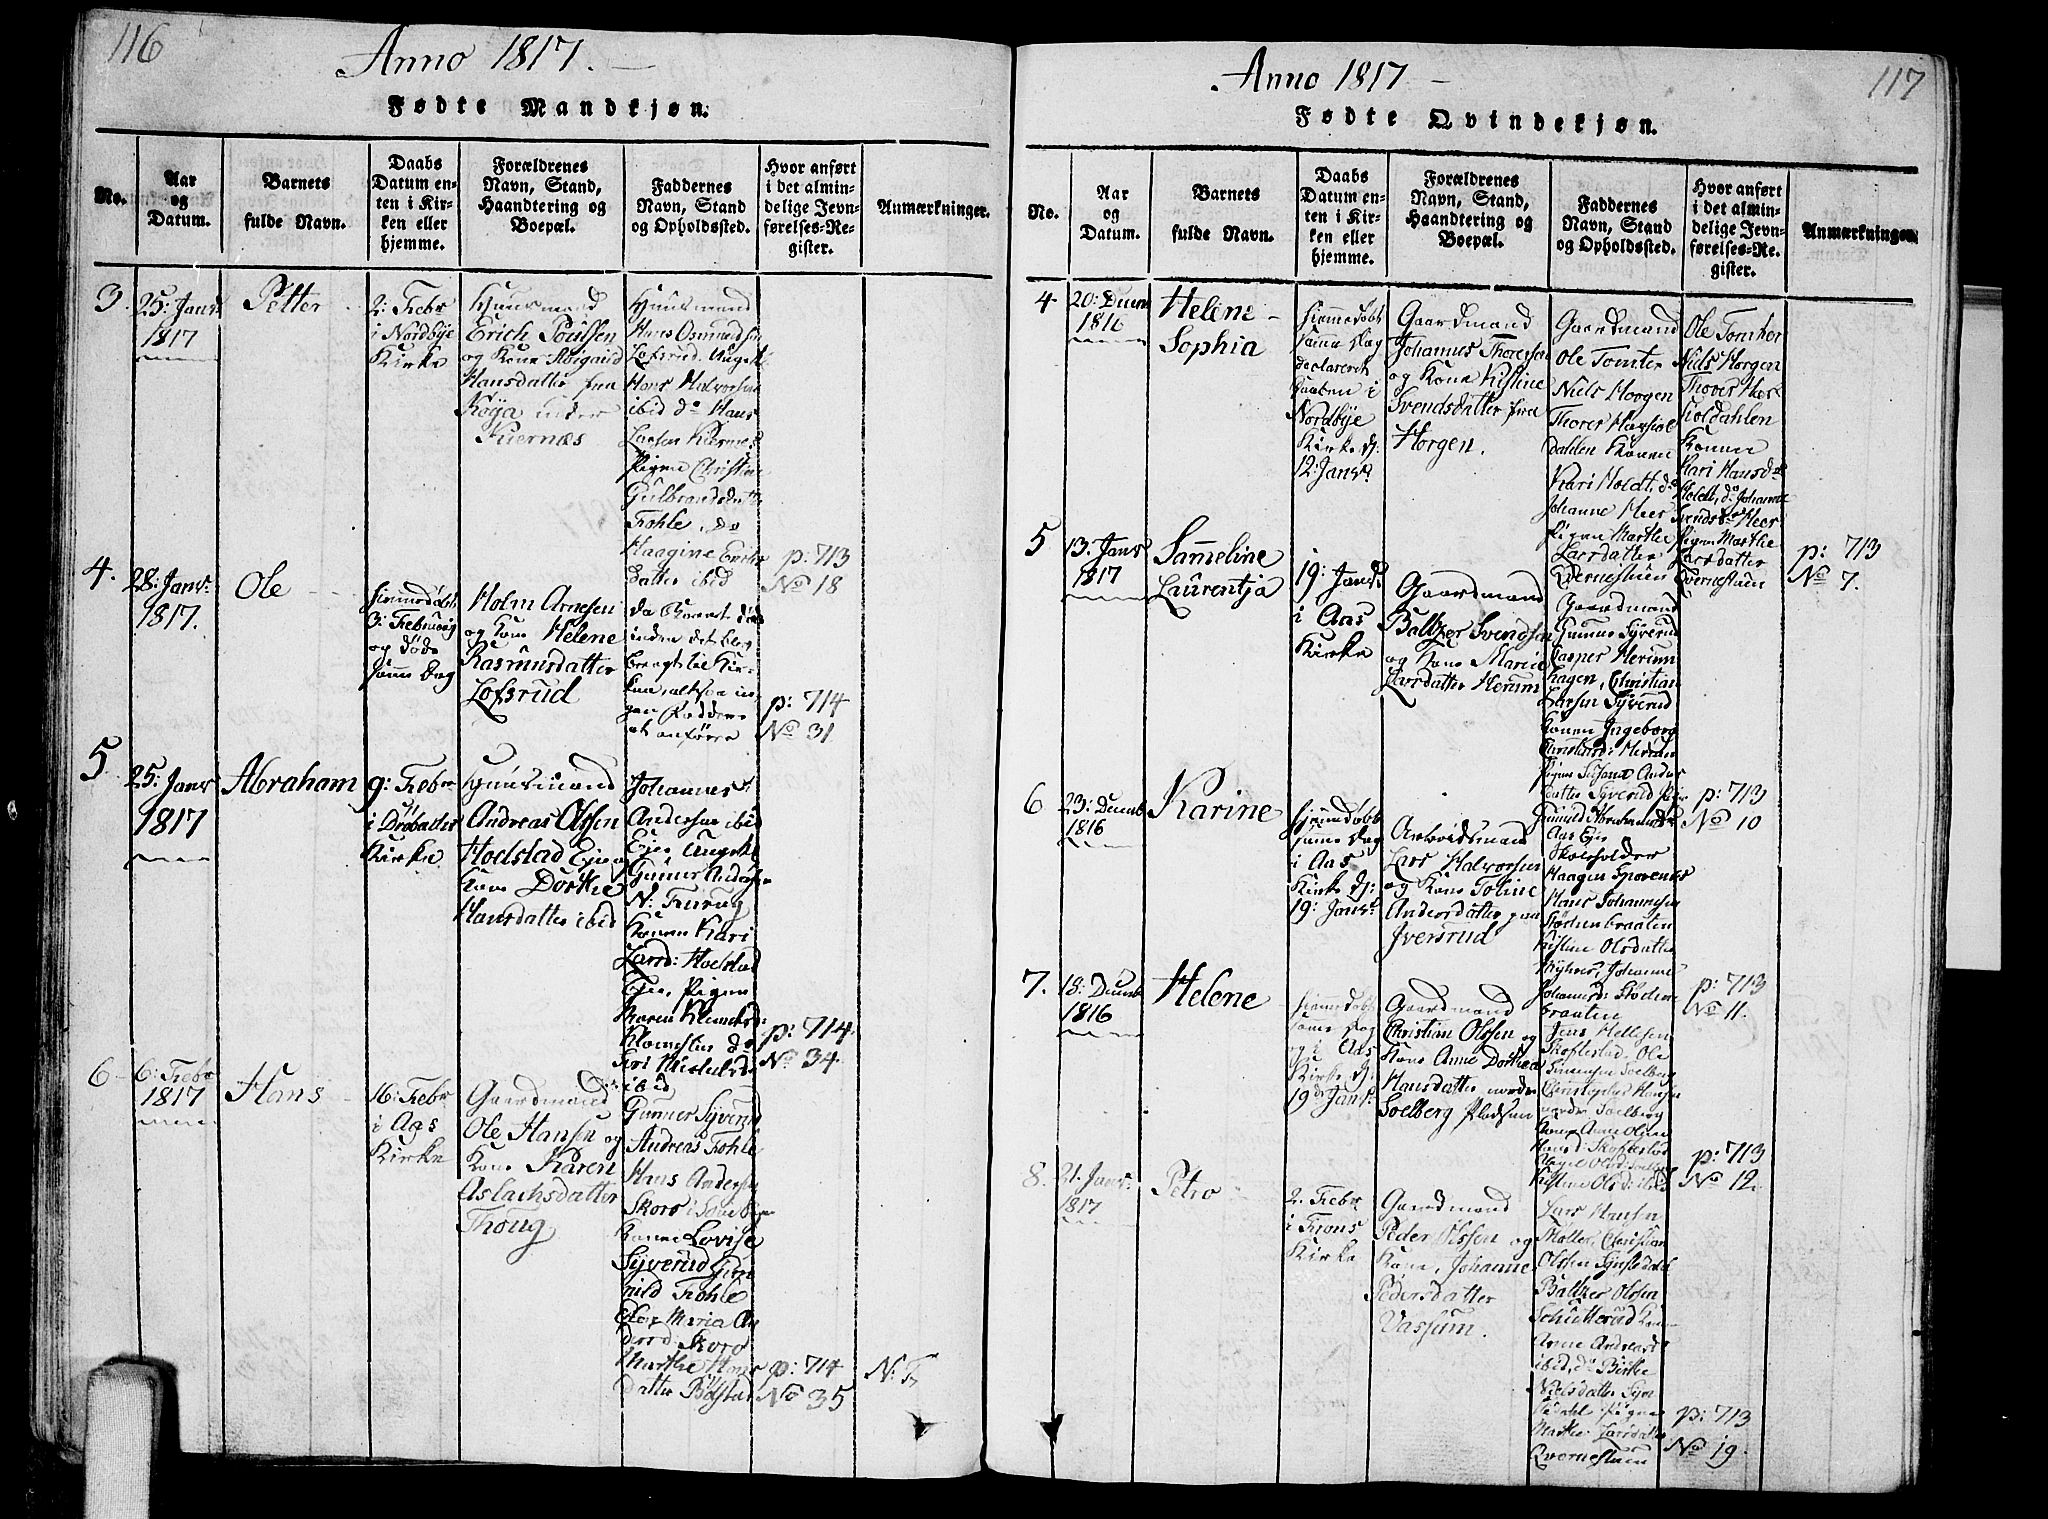 116
Anno 1817.
Fødte Mandkjøn.
No.
Aar
og
Datum.
Barnets
fulde Navn.
Daabs
Datum en-
ten i Kir-
ken eller
hjemme.
Forældrenes
Navn, Stand,
Haandtering og
Boepæl.
Faddernes
Navn, Stand
og Opholdssted.
Hvor anført
i det almin-
delige Jevn-
førelses-Re-
gister.
Anmærkninger.
3
25: Janr
1817
Petter
2: Febr
i Nordbye
Kirke
Huusmand
Erich Poulsen
og Kone Abigaird
Hansdatter fra
Köya under
Kiernæs
Huusmand
Hans Osmundsen
Lofsrud. Ungkl
Hans Halvorsen
ibid do Hans
Larsen Kiernes
Pigen Christine
Gulbrandsdatter
Fohle, do
Haagine Erichs
datter ibid
p: 713
No 18
4.
28: Janr:
1817.
Ole
hiemmedöbt
3: Februarij
og döde
samme Dag
Holm Arnesen
og Kone Helene
Rasmusdatter
Lofsrud
da Barnet döde
inden det blev
bragt til Kir-
ken, altsaa in-
gen Faddere
at anföre
p: 714
No 31
5
25: Janr
1817
Abraham
9: Febr
i Dröbak
Kirke
Huusmand
Andreas Olssen
Hoelstad Eje og
Kone Dorthe
Hansdatter ibid
Johannes
Andersen ibid
Eje Ungkl
Gunner Anders
N:
Konen Kari
Larsd: Hoelstad
Eje, Pigen
Maren
do
ibid
p: 714.
No 34.
6
6: Febr
1817
Hans
16: Febr
i Aas
Kirke
Gaardmand
Ole Hansen og
Kone Karen
Aslachsdatter
Thoug
Gunner Syverud
Andreas Fohle
Hans Andersen
Skoro
Konen Lovise
Syverud Gun
nild Fohle
Maria An
dersd: Skoro
Marthe Hans
datter Bölstad
p: 714
No 35
N: F
Anno 1817
117
Fødte Qvindekjøn.
No.
Aar
og
Datum.
Barnets
fulde Navn.
Daabs
Datum en-
ten i Kir-
ken eller
hjemme.
Forældrenes
Navn, Stand,
Haandtering og
Boepæl.
Faddernes
Navn, Stand
og Opholdssted.
Hvor anført
i det almin-
delige Jevn-
førelses-Re-
gister.
Anmærkninger
4
20: Decem
1816
Helene
Sophia
hiemmedöbt
samme Dag
declareret
Daaben i
Nordbye
Kirke d:
12 Janr
Gaardmand
Johannes Thoresen
og Kone Kistine
Svendsdatter fra
Horgen.
Gaardmand
Ole Tomter
Niels Horgen
Thorer Herfol
dahlen Konen
Kari Holdt, do
Johanne Heer
Pigen Marthe
Larsdatter
Qvernestuen
Ole Tomter
Niels Horgen
Thorer Her
foldahlen
Konen
Kari Hansdr
Holdt, do Johanne
Svendsdr Heer
Pigen Marthe
Larsdatter
Qvernestuen
p: 713
No 7.
5
13. Janr
1817
Sammeline
Laurentja
19: Janr
i Aas
Kirke
Gaardmand
Baltzer Svendsen
og Kone Marie
Larsdatter Herum
Gaardmand
Gunner Syverud
Casper Herum
hagen, Christian
Larsen Syverud
Konen Ingeborg
Pigen Susanne Anders
datter Syverud
p: 713
No 10
6
23: Decemb
1816
Karine
hjemmedöbt
samme Dag
i Aas
Kirke d:
19: Janr
Arbeidsmand
Lars Halvorsen
og Kone Toline
Andersdatter paa
Iversrud
Aas Eje
Skoleholder
Haagen Sporenes
Hans Johannesen
Stödenbraaten
Kistine Olsdatter
Myhrer, Johanne
Johannesd: Stöden
braaten
p: 713
No 11.
7.
18: Decemb
1816
Helene
hjemmedöbt
samme Dag
og i Aas
Kirke d:
19de Janr
Gaardmand
Christian Olssen og
Kone Anne Dorthea
Hansdatter nordre
Solberg Pladsen
Jens Hellesen
Skoftestad, Ole
Simensen Soelberg
Christopher Hansen
nordre Soelberg
Kone Anne Olsen
Hansd: Skoftestad
Kistine Olsd: ibid
p: 713
No 12.
8.
21. Janr:
1817
Petro
2. Febr
i Frons
Kirke
Gaardmand
Peder Olssen og
Kone, Johanne
Pedersdatter
Vasjum.
Lars Hansen
Möller, Christian
Olssen
Baltzer Olssen
Schutterud Kon-
Anne Andreasd
ibid, do Birthe
Nielsdatter Syn
dal Pigen
Marthe Larsdatter
Qvernestuen
p: 713
No 19.